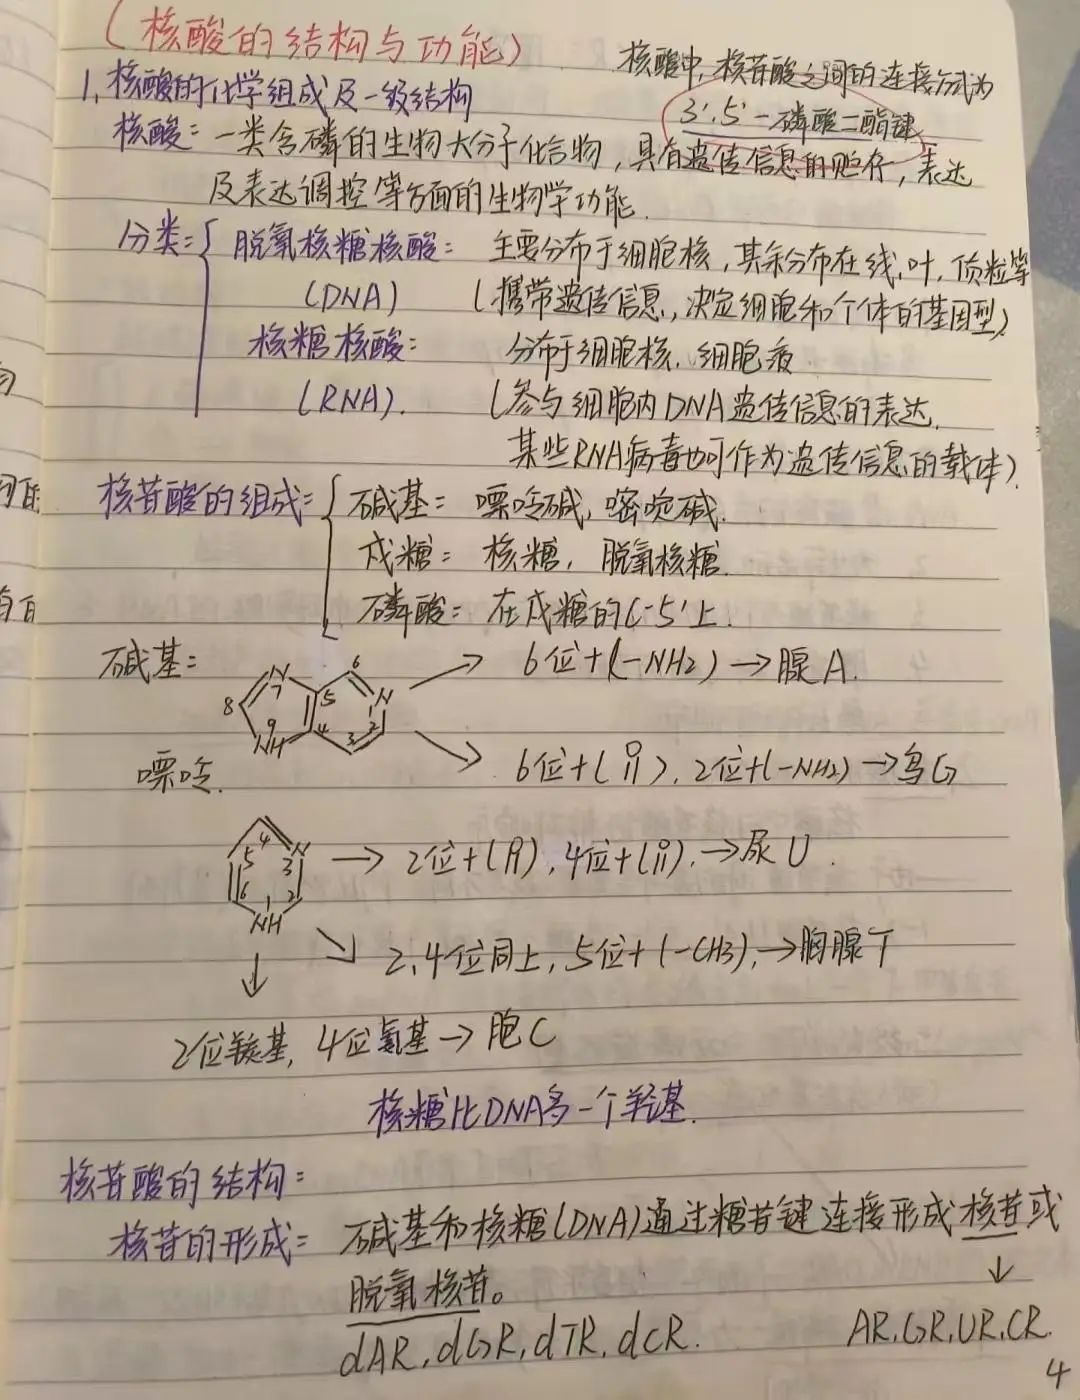 (核酸的结构与功能)
核酸中,核苷酸之间的连接方式为
3'.5'-磷酸二酯键
1,核酸的化学组成及一级结构
核酸:一类含磷的生物大分子化合物,具有遗传信息的贮存,表达
及表达调控等方面的生物学功能.
分类:
脱氧核糖核酸: 主要分布于细胞核,其余分布在线,叶,质粒等
(DNA) (携带遗传信息,决定细胞和个体的基因型)
核糖核酸: 分布于细胞核.细胞液
(RNA). (参与细胞内DNA遗传信息的表达.
某些RNA病毒也可作为遗传信息的载体).
核苷酸的组成: 碱基: 嘌呤碱,嘧啶碱.
戊糖: 核糖,脱氧核糖.
磷酸: 在戊糖的C-5'上.
碱基: 6位+(-NH2)→腺A.
N 7 8 9 NH 5 4 6 N 1 2 3
嘌呤. 6位+(),2位+(-NH2)→鸟G
4 5 N 3 6 1 2 NH
→ 2位+(),4位+(),→尿U.
2,4位同上,5位+(-CH3),→胸腺T
2位羰基,4位氨基→胞C
核糖比DNA多一个羟基.
核苷酸的结构:
核苷的形成: 碱基和核糖(DNA)通过糖苷键连接形成核苷或
↓
脱氧核苷。
dAR,dGR,dTR,dCR. AR,GR,UR,CR.
4